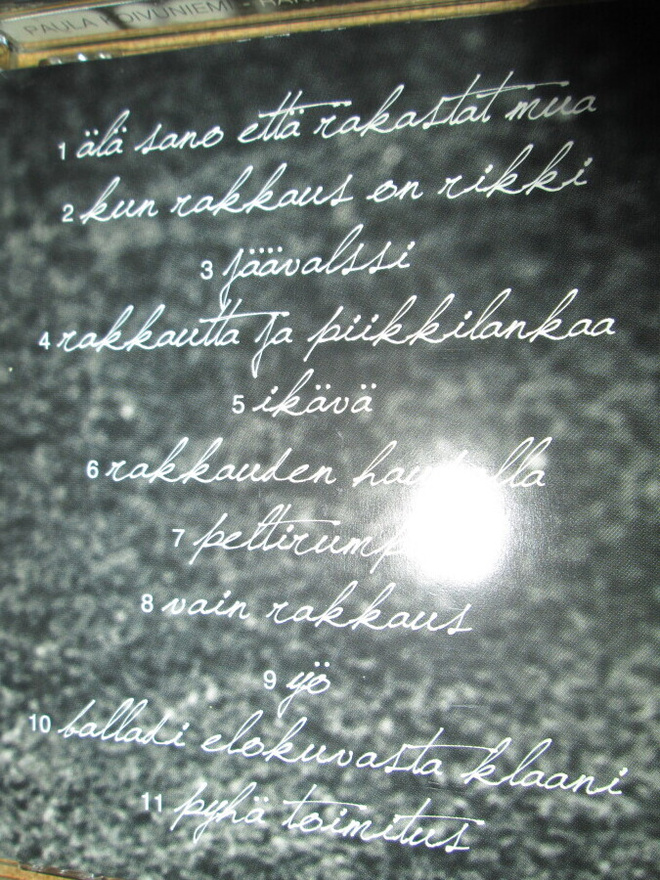 PAULA KOIVUNIEMI -
1 älä sano että rakastat mua
2 kun rakkaus on rikki
3 jäävalssi
4 rakkautta ja piikkilankaa
5 ikävä
6 rakkauden
7
8 vain rakkaus
9 yö
10 balladi elokuvasta klaani
11 pyhä toimitus